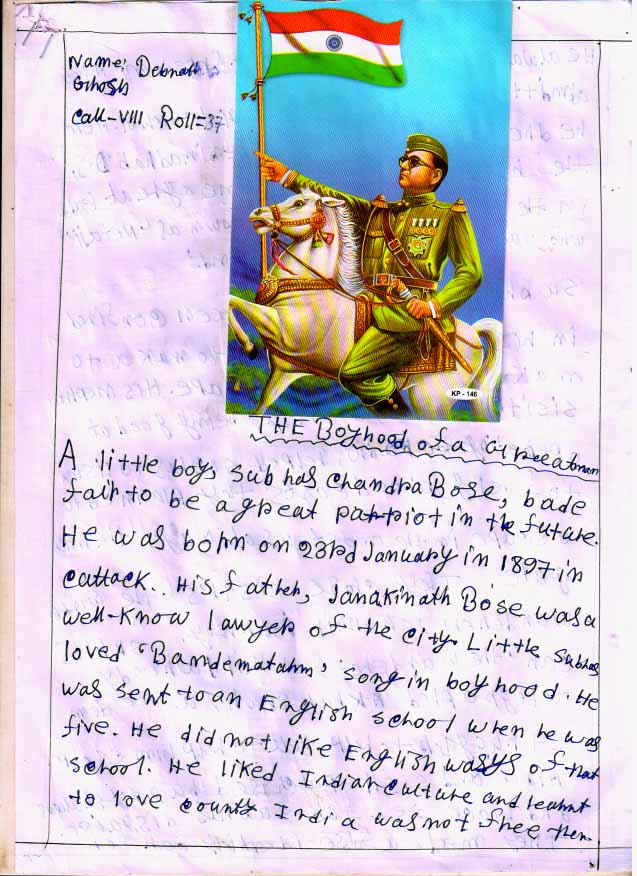 Name: Debnath
Ghosh
Call-VIII Roll=37
KP - 146
THE Boyhood of a Greatman
A little boy, Subhas Chandra Bose, bade
fair to be a great patriot in the future.
He was born on 23rd January in 1897 in
cattack. His father, Janakinath Bose was a
well-know lawyer of the city. Little Subhas
loved 'Bamdematahm' song in boyhood. He
was sent to an English school when he was
five. He did not like English wasys of that
school. He liked Indian culture and learnt
to love country India was not free then.